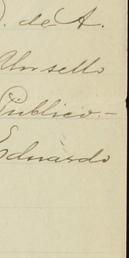 . de A.
Morsello
Publico.-
Eduardo